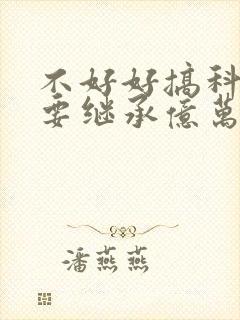 不好好搞科
要继承亿萬
潘燕燕